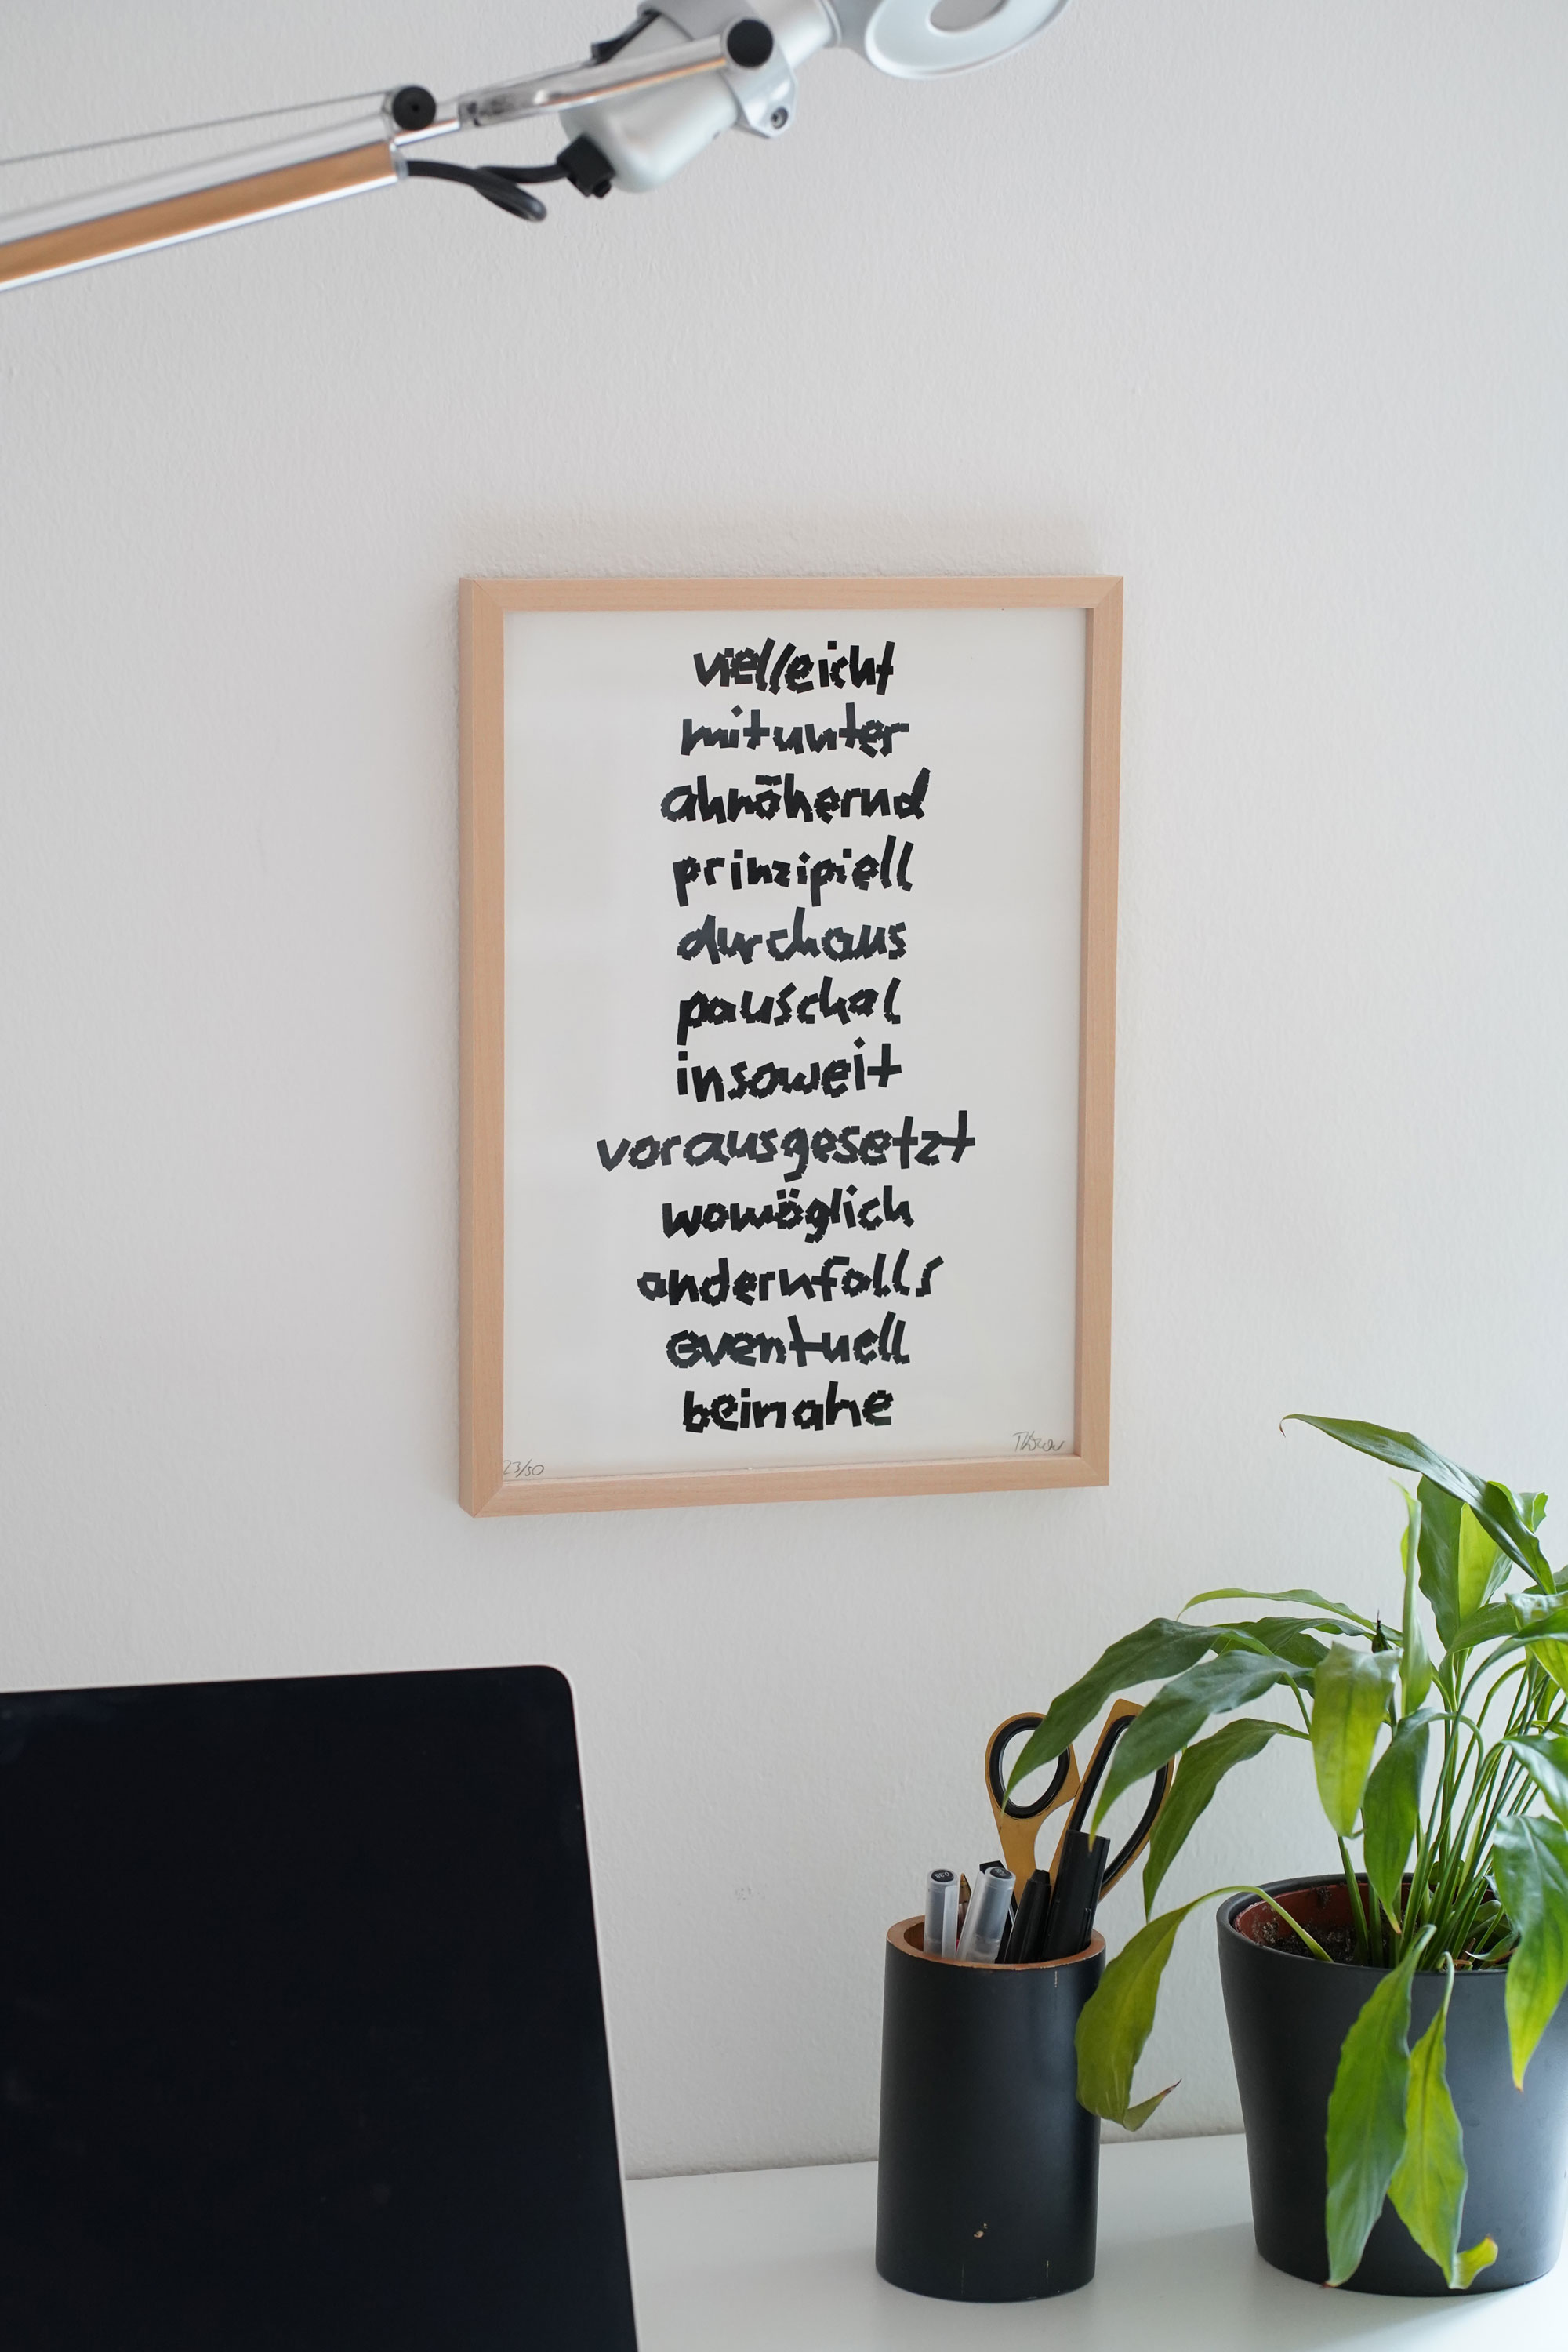 vielleicht
mitunter
annähernd
prinzipiell
durchaus
pauschal
insoweit
vorausgesetzt
womöglich
andernfalls
eventuell
beinahe
23/50